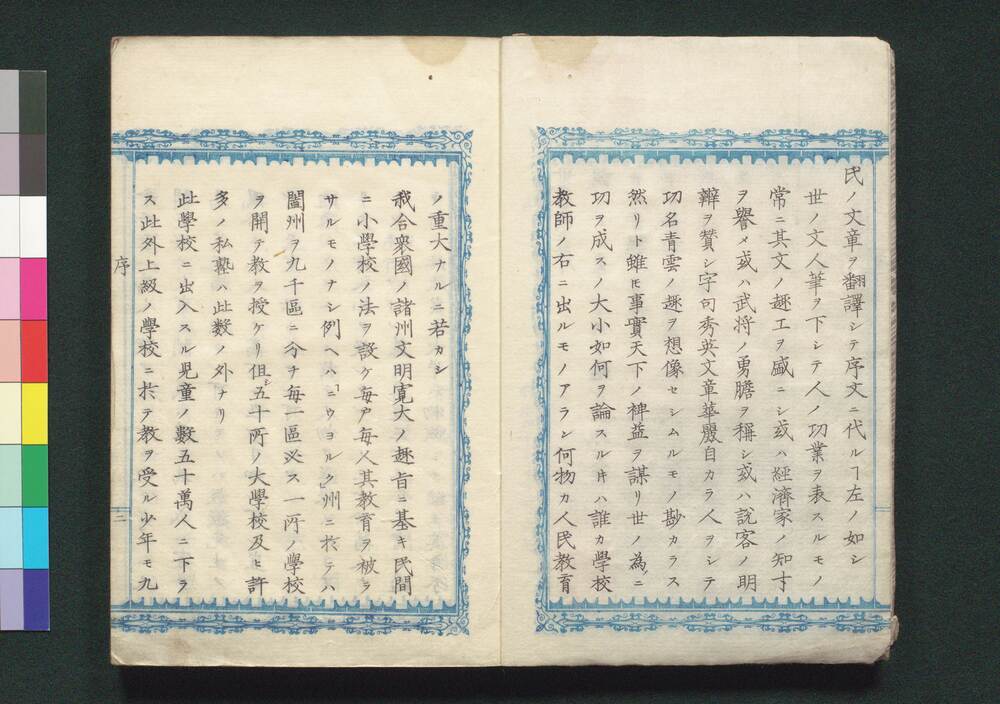 氏ノ文章ヲ翻譯シテ序文ニ代ルヿ左ノ如シ
世ノ文人筆ヲ下シテ人ノ功業ヲ表スルモノ
常ニ其文ノ趣工ヲ盛ニシ或ハ經濟家ノ知才
ヲ譽メ或ハ武将ノ勇膽ヲ稱シ或ハ說客ノ明
辯ヲ賛シ字句秀英文章華嚴自カラ人ヲシテ
功名青雲ノ趣ヲ想像セシムルモノ尠カラス
然リト雖𪜈事實天下ノ裨益ヲ謀リ世ノ為ニ
功ヲ成スノ大小如何ヲ論スル𪜈ハ誰カ學校
教師ノ右ニ出ルモノアラン何物カ人民教育
ノ重大ナルニ若カン
我合衆國ノ諸州文明寛大ノ趣旨ニ基キ民間
ニ小學校ノ法ヲ設ケ毎戸毎人其教育ヲ被ラ
サルモノナシ例ヘハ「ニウヨルク」州ニ於テハ
闔州ヲ九千區ニ分チ毎一區必ス一所ノ學校
ヲ開テ教ヲ授ケリ但シ五十所ノ大學校及ヒ許
多ノ私塾ハ此数ノ外ナリ
此學校ニ出入スル児童ノ數五十萬人ニ下ラ
ス此外上級ノ學校ニ於テ教ヲ受ル少年モ九
序
二